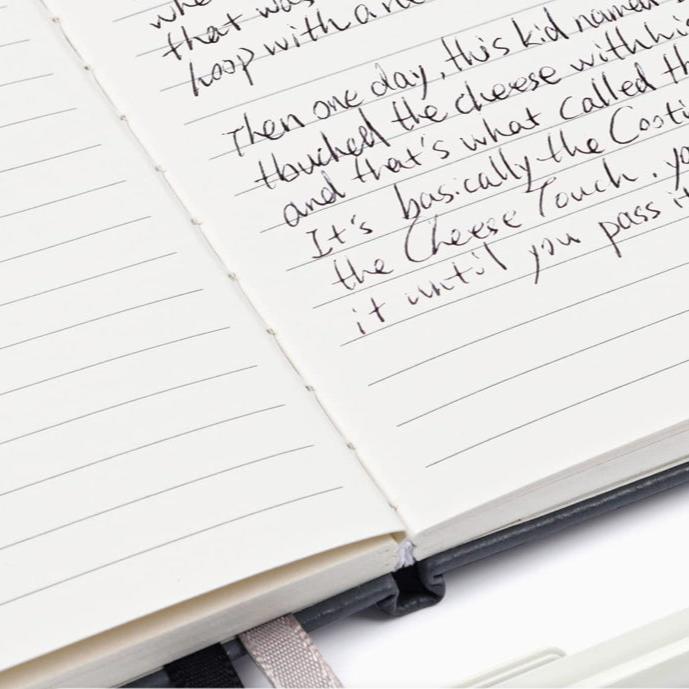 that was
hoop with a
Then one day, this kid named
thouched the cheese with hi
and that's what called th
It's basically the Cooti
the Cheese Touch. yo
it until you pass it